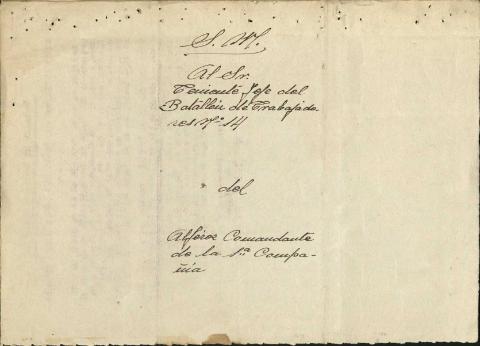 S. M.
Al Sr.
Teniente Jefe del
Batallón de Trabajado
res Nº 14
del
Alférez Comandante
de la 1ª Compa-
ñía